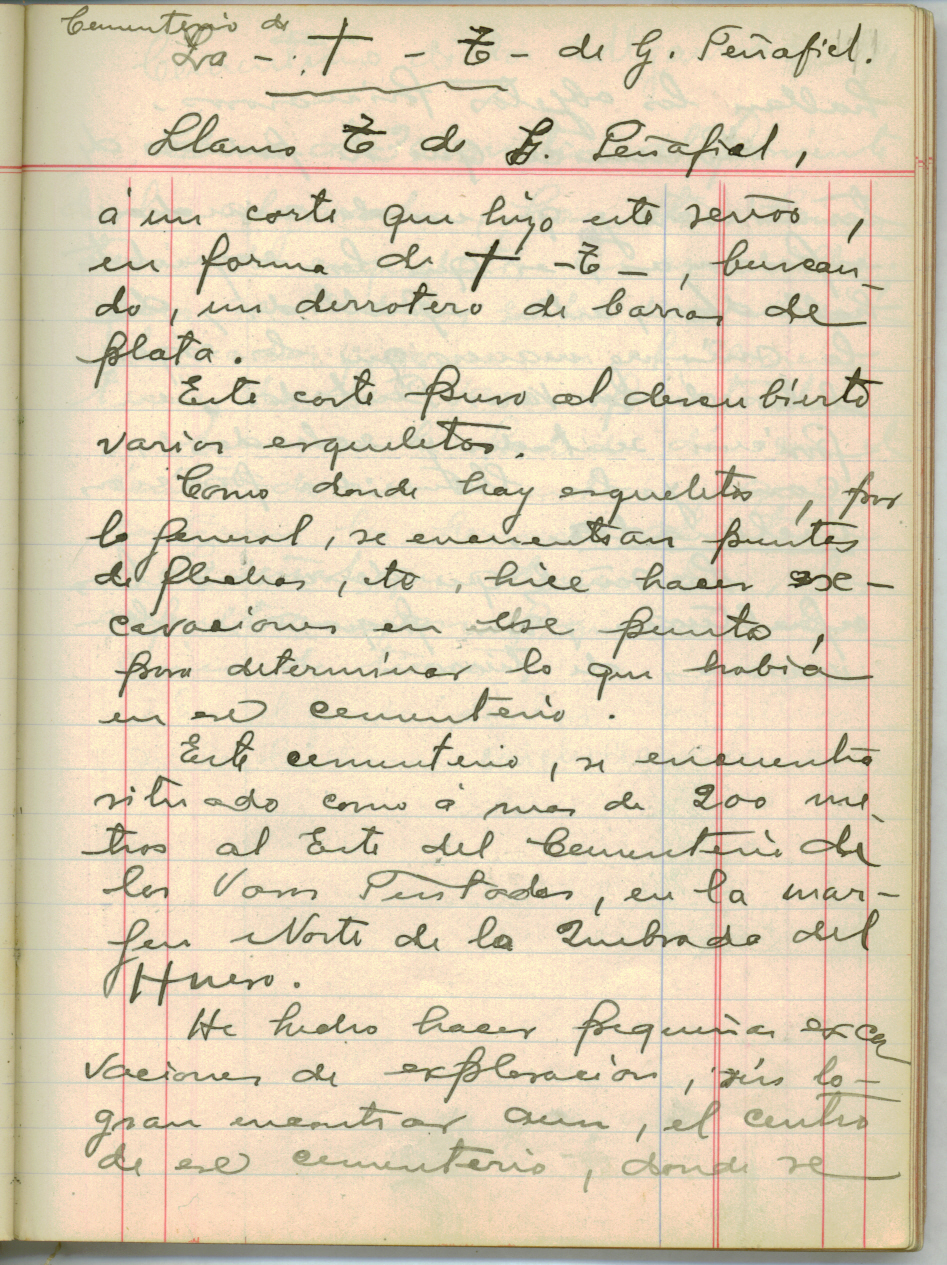 Cementerio de
La - † - T - de G. Peñafiel.
Llamo T de G. Peñafiel,
á un corte que hizo este señor,
en forma de † - T -, buscan-
do, un derrotero de barras de
plata.
Este corte puso al descubierto
varios esqueletos.
Como donde hay esqueletos, por
lo general, se encuentran puntas
de flechas, etc, hice hacer exc-
cavaciones en ese punto,
para determinar lo que había
en ese cementerio.
Este cementerio, se encuentra
situado como á mas de 200 me-
tros al Este del Cementerio de
los Vasos Pintados, en la mar-
jen Norte de la Quebrada del
Hueso.
He hecho hacer pequeñas exca
vaciones de exploracion, sin lo-
gran encontrar aun, el centro
de ese cementerio, donde se